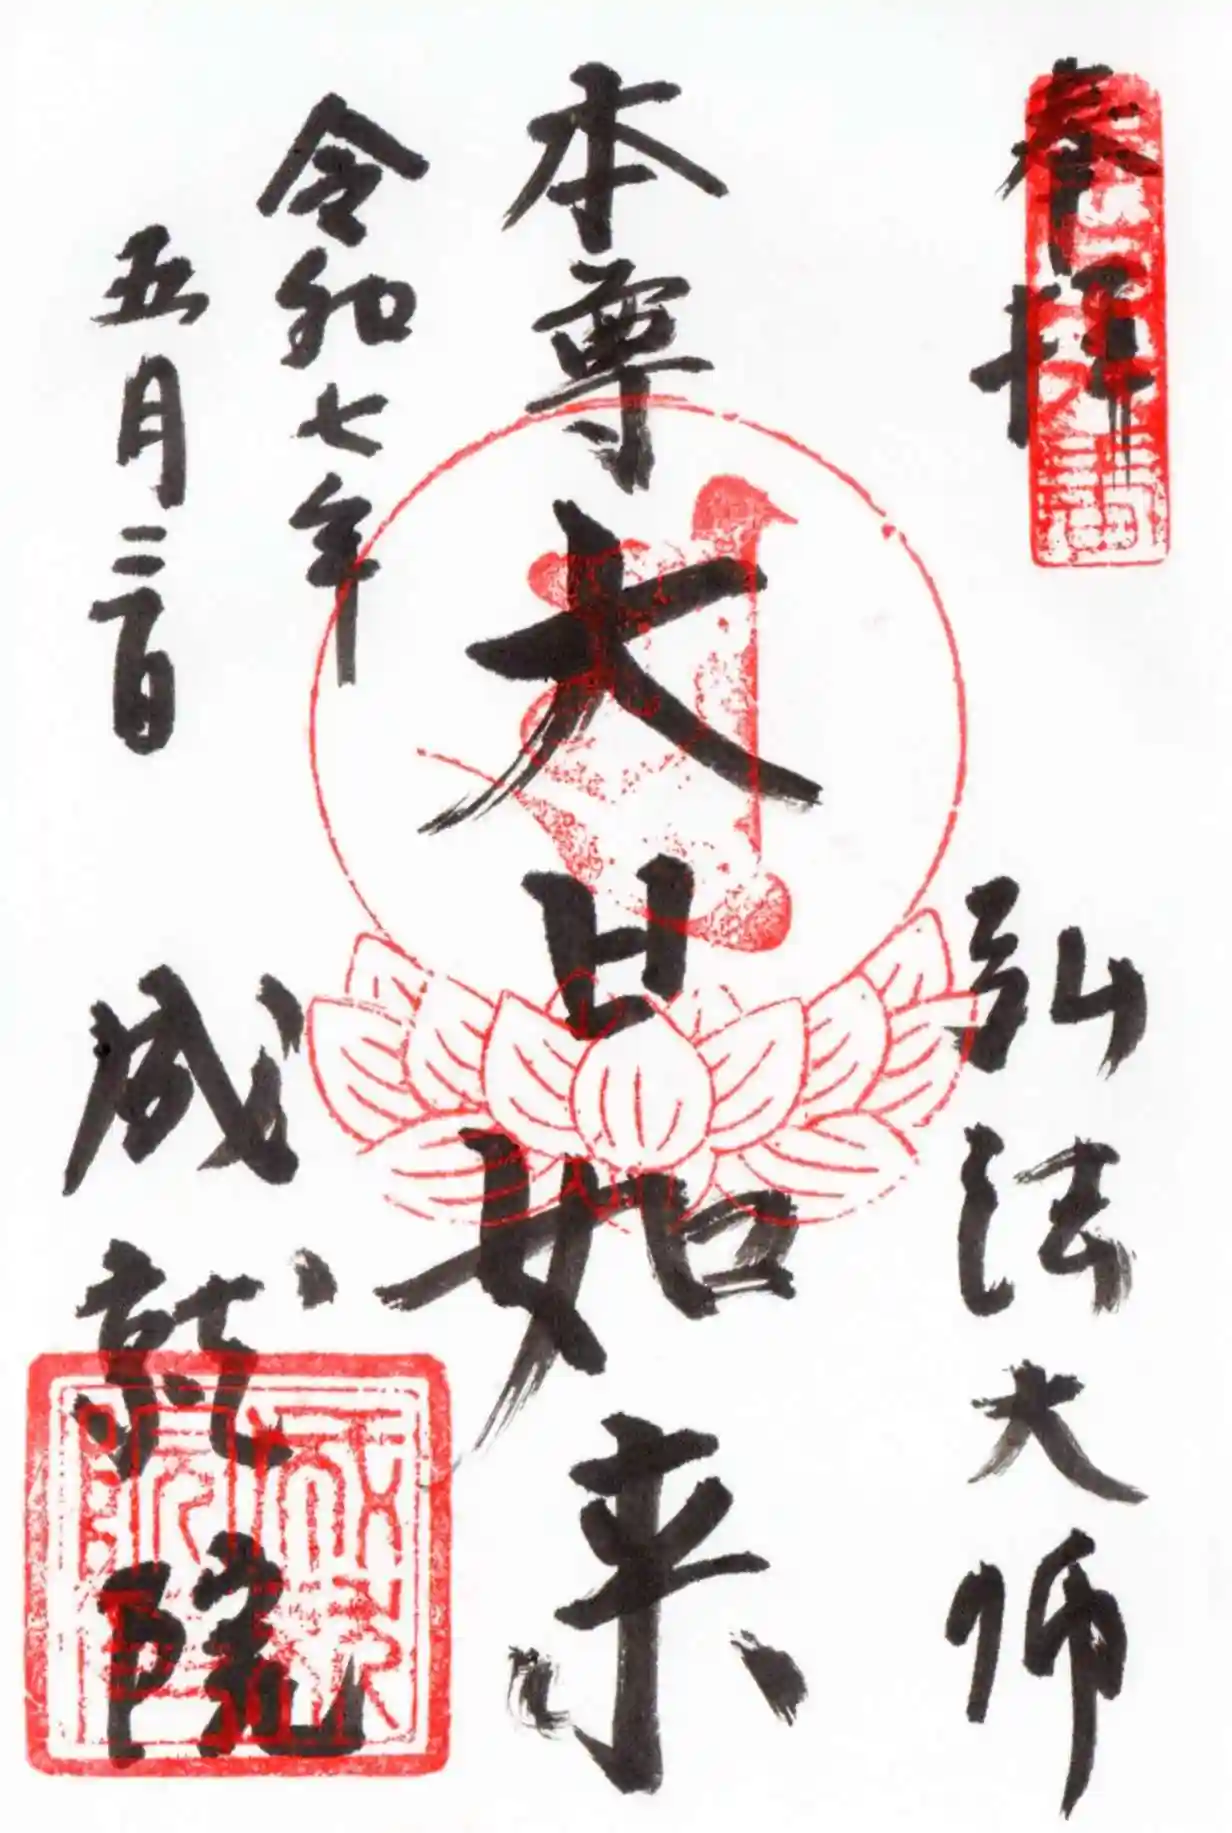 奉拝
弘法大師
本尊
大日如来
令和七年
五月三日
成就院
成就院